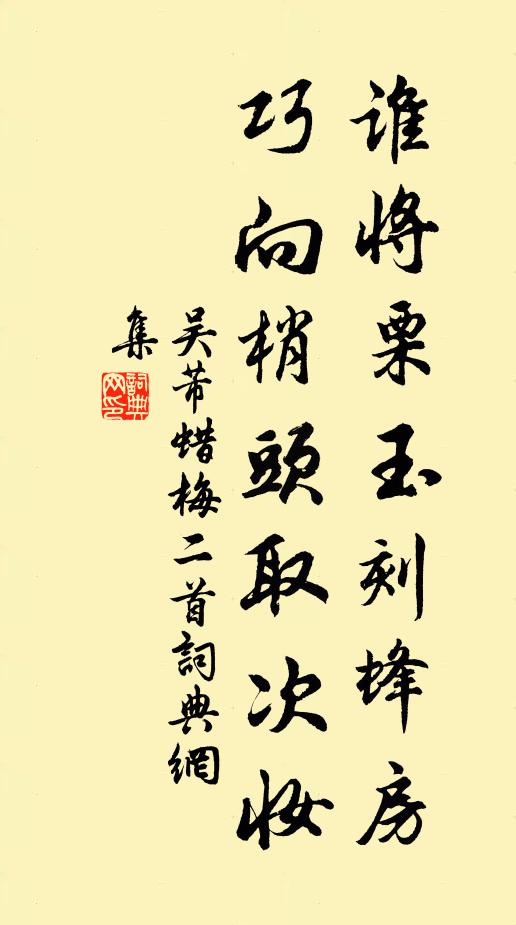 谁将栗玉刻蜂房
巧向梢頭取次妆
吴芾蜡梅二首詞典網
集
詞典
网印